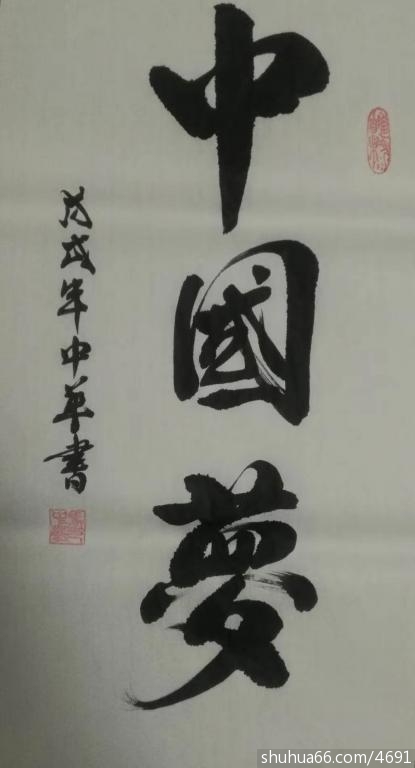 中國夢
戊戌年中華書
shuhua66.com/4691